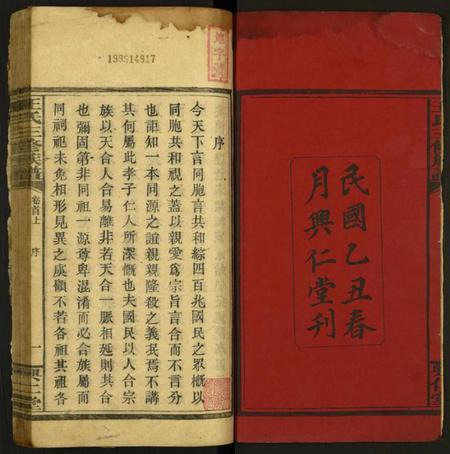 民國乙丑春
月興仁堂刊
王氏三修族譜
198514917
地字號
序
今天下言同胞言共和綜四百兆國民之眾槪以
同胞共和視之蓋以親愛爲宗旨言合而不言分
也詎知一本同源之誼親親隆殺之義㒳焉不講
其何屬此孝子仁人所深慨也夫國民以人合宗
族以天合人合易離非若天合一脈相延則其合
也彌固第非同祖一源尊卑混淆而必合族屬而
同祠祀未免相形見異之虞顧不若各祖其祖各
王氏三修族譜
卷首上
序
一